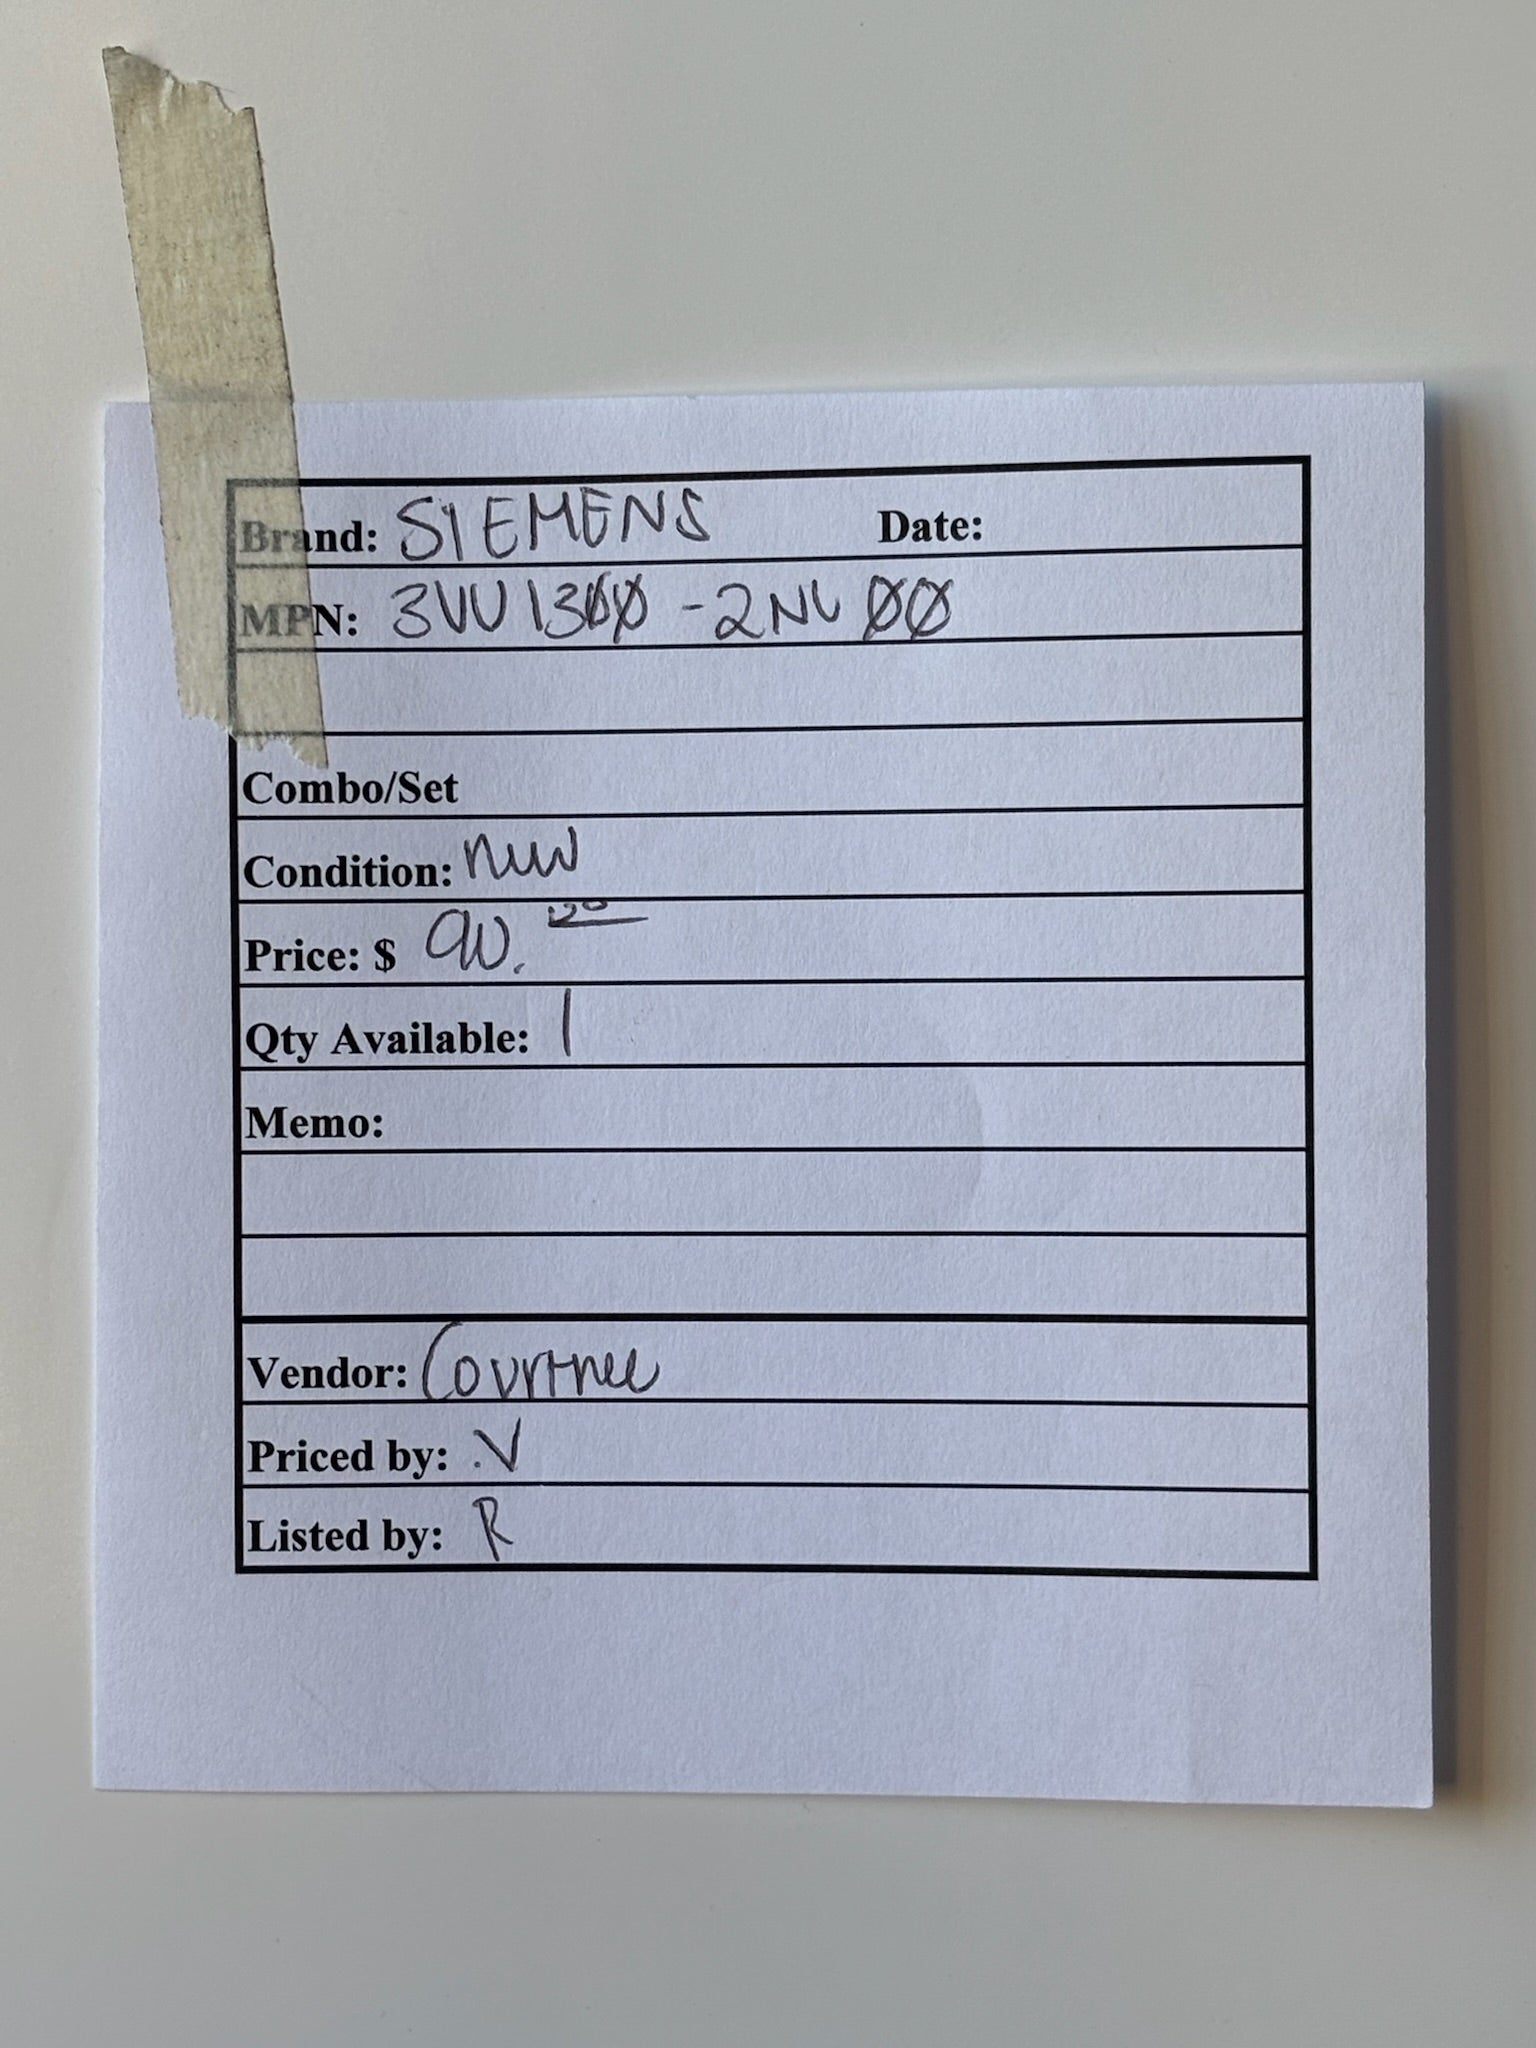 Brand: SIEMENS Date:
MPN: 3VU1300-2NL00
Combo/Set
Condition: new
Price: $ 90.00
Qty Available: 1
Memo:
Vendor: Courtnee
Priced by: .V
Listed by: R